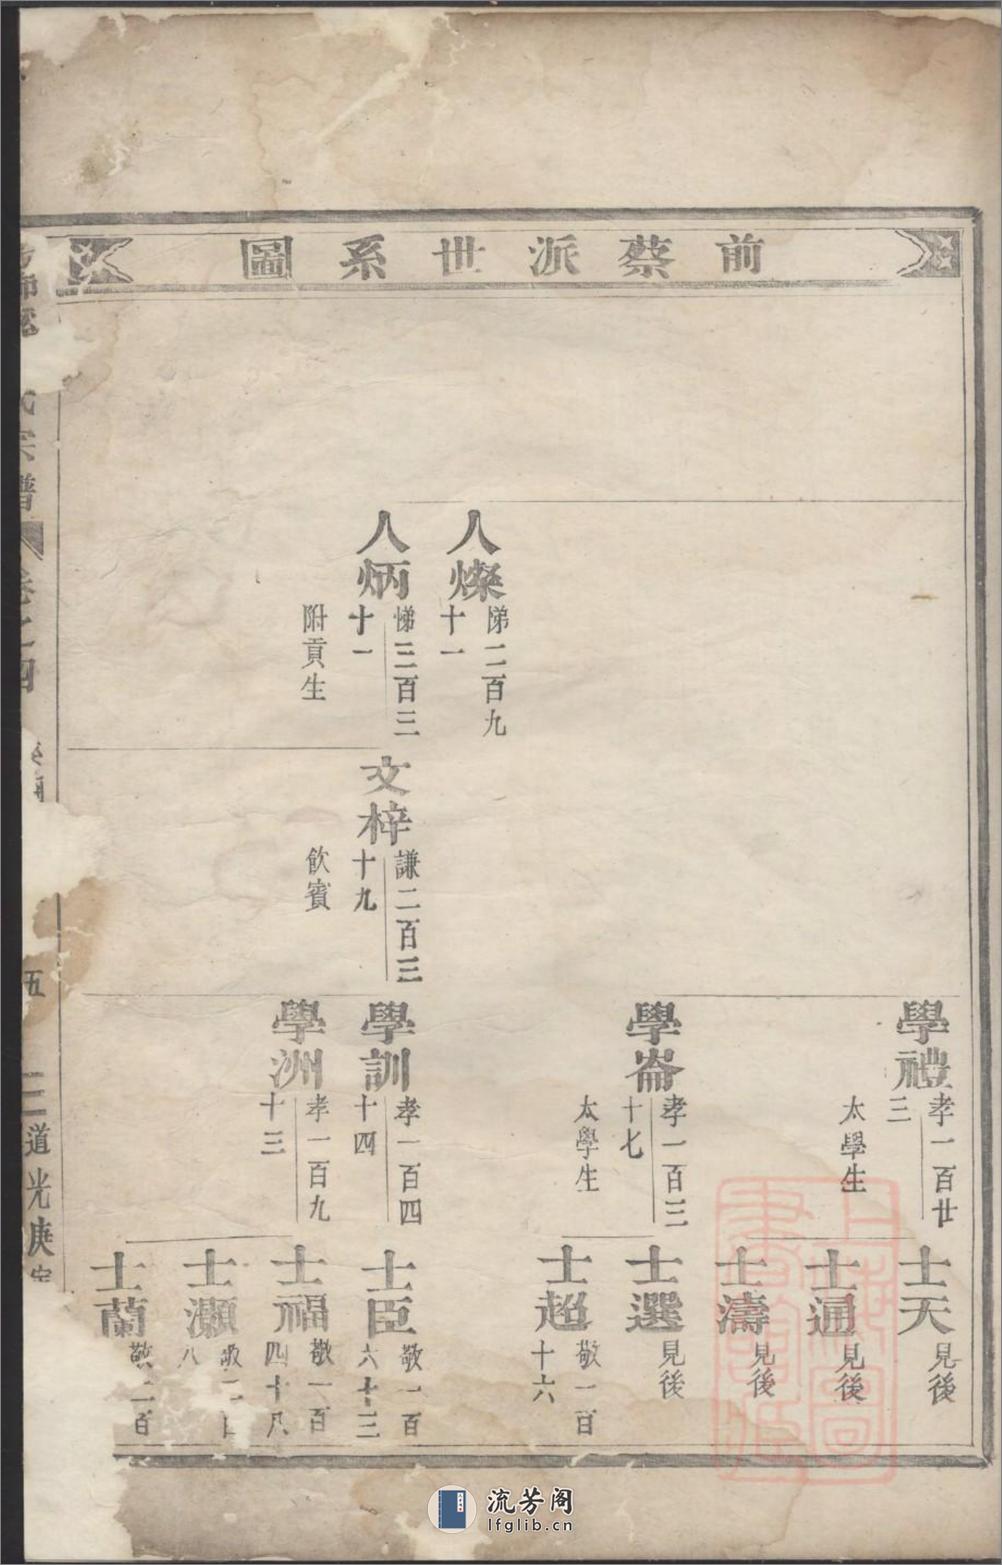 前蔡派世系圖
人燦
悌二百九
十一
人炳
悌三百三
十一
附貢生
文梓
謙二百三
十九
飲賓
學禮
孝一百廿
三
太學生
學崙
孝一百三
十七
太學生
學訓
孝一百四
十四
學洲
孝一百九
十三
士天
見後
士通
見後
士濤
見後
士選
見後
士超
敬一百
十六
士臣
敬一百
六十三
士福
敬一百
四十八
士灝
敬二百
八
士蘭
敬二百
氏宗譜
卷之四
五
道光庚寅
上海圖書館藏
流芳阁
lfglib.cn